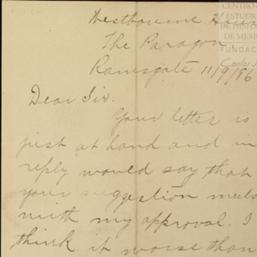 Westbourne House
The Paragon
Ramsgate 11/9/86
Dear Sir.
Your letter is
just at hand and in
reply would say that
your suggestion meets
with my approval. I
think it worse than
CENTRO
ESTUDI
DE HISTORI
DE MEXIC
FUNDAC